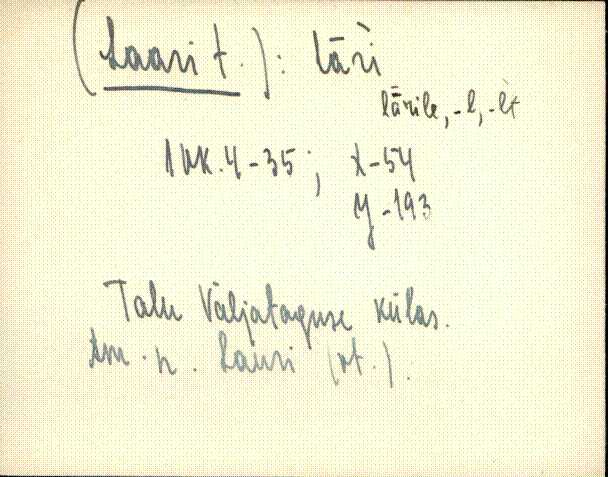 (Laari t.): lāri
lārile, -l, -lt
1 VK. 4-35; x-54
y-193
Talu Väljataguse külas.
Am. n. Lauri (vt.).